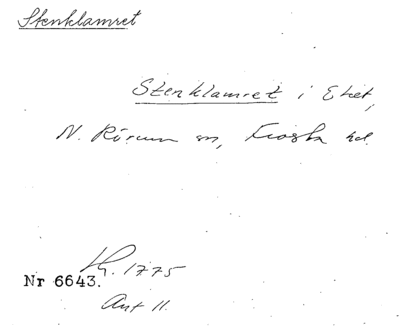 Stenklamret
Stenklamret i Eket,
N. Rörum sn, Frosta hd.
Kh. 1775
Nr 6643.
Ant 11.